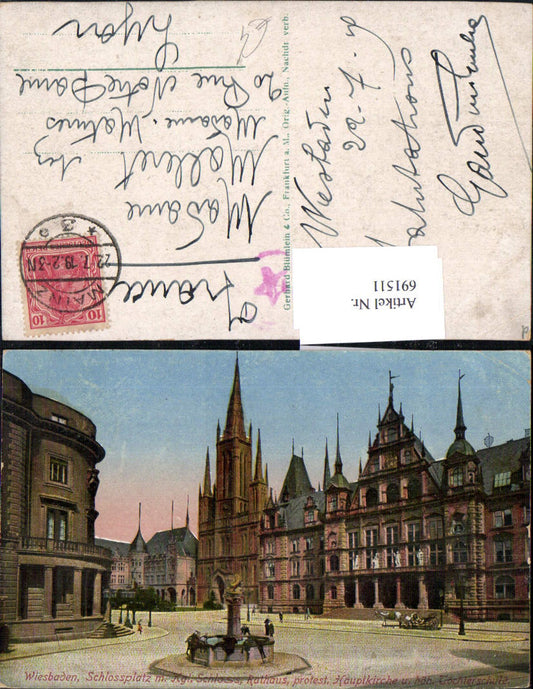 Wiesbaden
22-7-19
Salutations
France
Madame
Malleret
chez
Madame Matines
20 Rue Notre Dame
Lyon
Gerhard Blümlein & Co., Frankfurt a. M., Orig.-Auto., Nachdr. verb.
MAINZ
22.7.19.2-3N
* 2 c
10 10
Artikel Nr.
691511
Wiesbaden, Schlossplatz m. Kgl. Schloss, Rathaus, protest. Hauptkirche u. höh. Töchterschule.